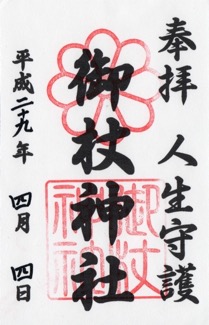 奉拝 人生守護
御杖神社
平成二十九年 四月 四日
御杖
神社